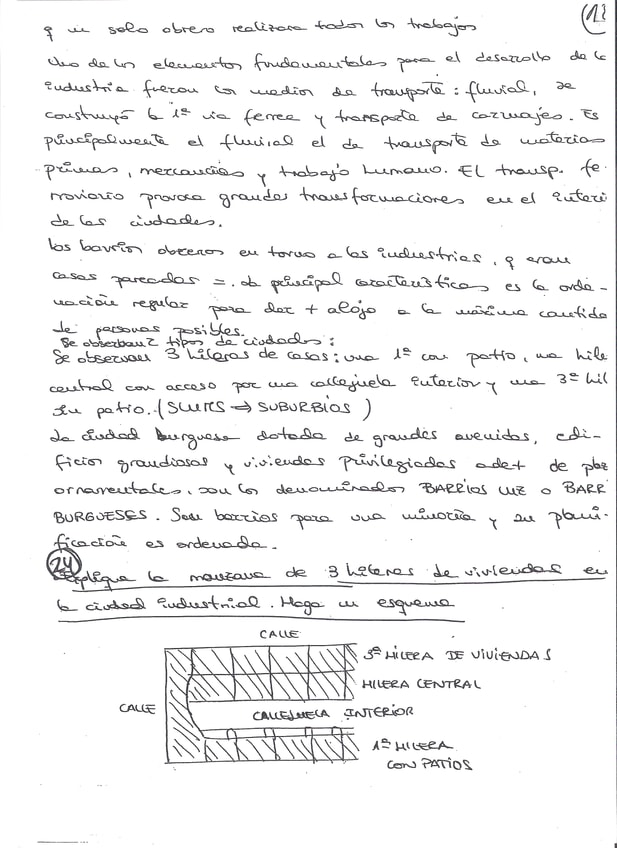 13
q un solo obrero realizara todos los trabajos
Uno de los elementos fundamentales para el desarollo de la
industria fueron los medios de transporte: fluvial, se
construyó la 1ª via ferrea y transporte de carruajes. Es
principalmente el fluvial el de transporte de materias
primas, mercancías y trabajo humano. El transp. fe-
rroviario provoca grandes transformaciones en el interi
de las ciudades.
Los barrios obreros en torno a las industrias, q eran
casas pareadas =. La principal característica es la orde-
nación regular para dar + alojo a la máxima cantida
de personas posibles.
Se observan 2 tipos de ciudades:
Se observan 3 hileras de casas: una 1ª con patio, una hile
central con acceso por una callejuela interior y una 3ª hil
sin patio. (SLUMS ⇒ SUBURBIOS)
La ciudad burguesa dotada de grandes avenidas, edi-
ficios grandiosos y viviendas privilegiadas ade+ de plaz
ornamentales, son los denominados BARRIOS LUZ o BARR
BURGUESES. Son barrios para una minoría y su plani-
ficación es ordenada.
24
Explique la manzana de 3 hileras de viviendas en
la ciudad industrial. Haga un esquema
CALLE
3ª HILERA DE VIVIENDAS
HILERA CENTRAL
CALLE
CALLEJUELA INTERIOR
1ª HILERA
CON PATIOS